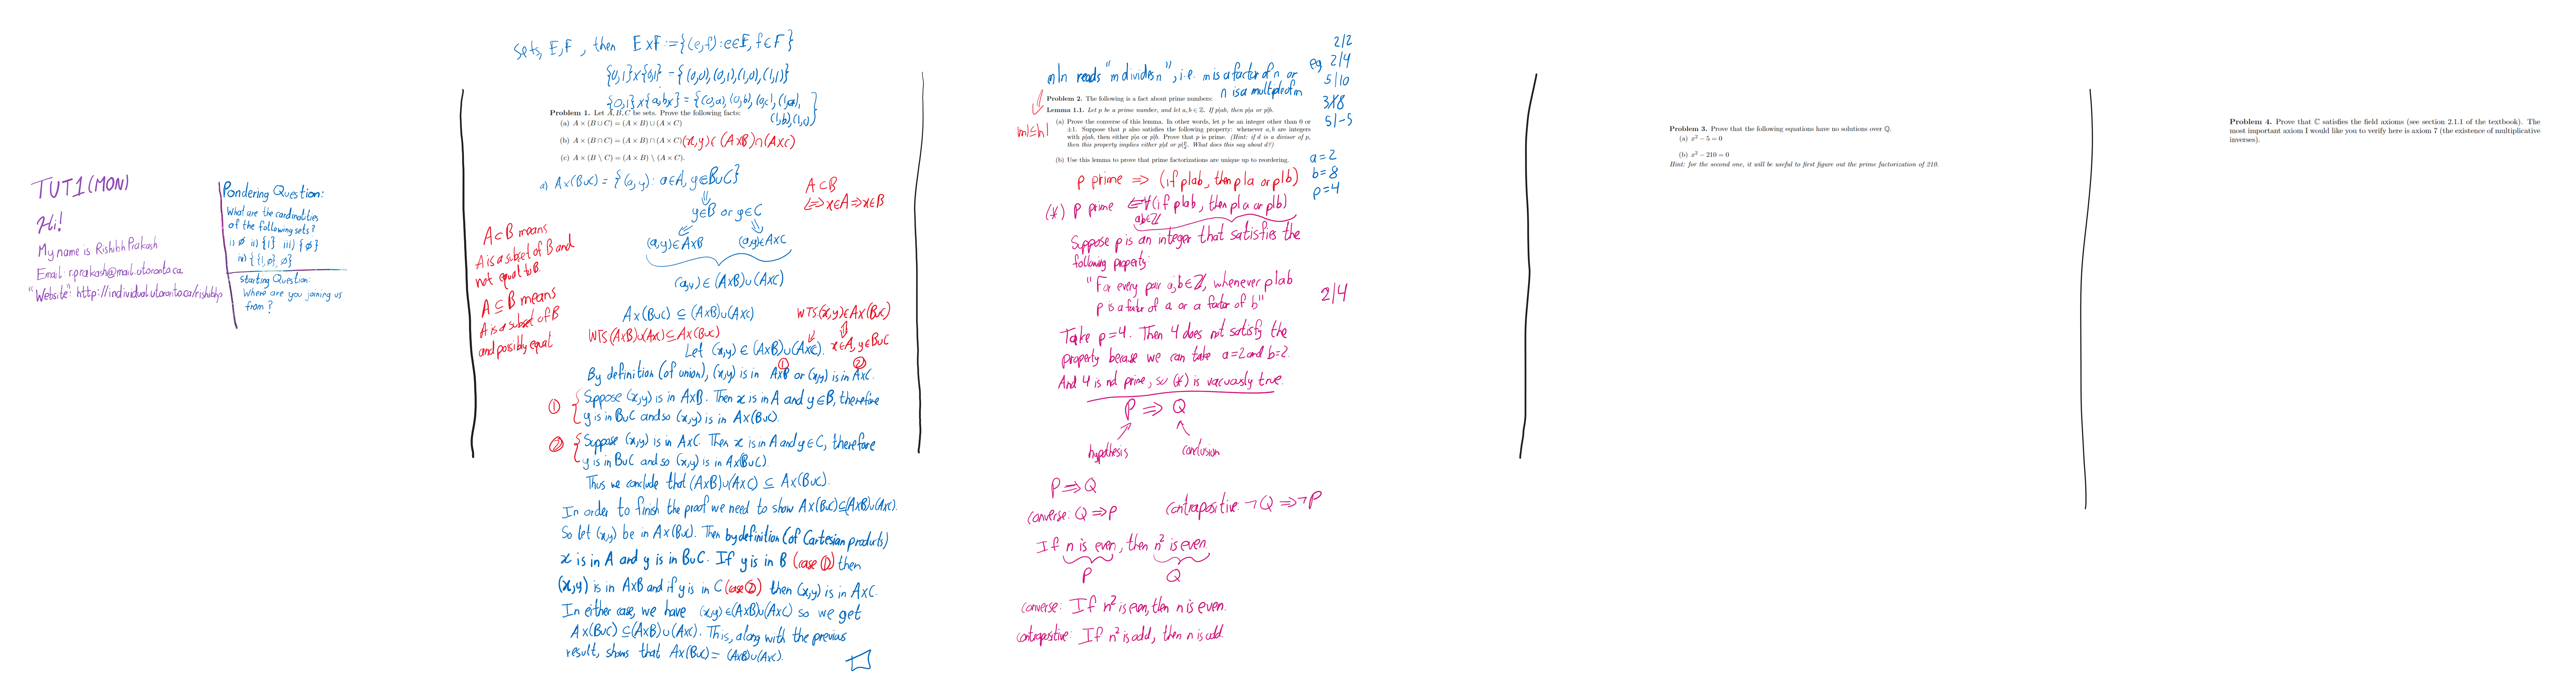 TUT1 (MON)
Hi!
My name is Rishibh Prakash
Email: r.prakash@mail.utoronto.ca
"Website": http://individual.utoronto.ca/rishibhp
Pondering Question:
What are the cardinalities
of the following sets?
i) ∅ ii) {1} iii) {∅}
iv) {{1,∅},∅}
Starting Question:
Where are you joining us
from?
Sets, E,F, then E×F:={(e,f):e∈E, f∈F}
{0,1}×{0,1} = {(0,0),(0,1),(1,0),(1,1)}
{0,1}×{a,b,x} = {(0,a),(0,b),
Problem 1. Let A, B, C be sets. Prove the following facts:
(a) A × (B ∪ C) = (A × B) ∪ (A × C)
(b) A × (B ∩ C) = (A × B) ∩ (A × C) (x,y)∈(A×B)∩(A×C)
(c) A × (B \ C) = (A × B) \ (A × C).
a) A×(B∪C) = {(a,y): a∈A, y∈B∪C}
⇓
y∈B or y∈C
(a,y)∈A×B (a,y)∈A×C
(a,y)∈(A×B)∪(A×C)
A⊂B
⇔x∈A⇒x∈B
A⊂B means
A is a subset of B and
not equal to B.
A⊆B means
A is a subset of B
and possibly equal
A×(B∪C) ⊆ (A×B)∪(A×C)
WTS (x,y)∈A×(B∪C)
⇕
x∈A, y∈B∪C
WTS (A×B)∪(A×C)⊆A×(B∪C)
Let (x,y) ∈ (A×B)∪(A×C).
① ②
By definition (of union), (x,y) is in A×B or (x,y) is in A×C.
① Suppose (x,y) is in A×B. Then x is in A and y∈B, therefore
y is in B∪C and so (x,y) is in A×(B∪C).
② Suppose (x,y) is in A×C. Then x is in A and y∈C, therefore
y is in B∪C and so (x,y) is in A×(B∪C).
Thus we conclude that (A×B)∪(A×C) ⊆ A×(B∪C).
In order to finish the proof we need to show A×(B∪C)⊆(A×B)∪(A×C).
So let (x,y) be in A×(B∪C). Then by definition (of Cartesian products)
x is in A and y is in B∪C. If y is in B (case ①) then
(x,y) is in A×B and if y is in C (case ②) then (x,y) is in A×C.
In either case, we have (x,y)∈(A×B)∪(A×C) so we get
A×(B∪C)⊆(A×B)∪(A×C). This, along with the previous
result, shows that A×(B∪C) = (A×B)∪(A×C).
m|n reads "m divides n", i.e. m is a factor of n or
n is a multiple of m
eg
2|2
2|4
5|10
3∤8
5|-5
|m|≤|n|
Problem 2. The following is a fact about prime numbers:
Lemma 1.1. Let p be a prime number, and let a, b ∈ Z. If p|ab, then p|a or p|b.
(a) Prove the converse of this lemma. In other words, let p be an integer other than 0 or
±1. Suppose that p also satisfies the following property: whenever a, b are integers
with p|ab, then either p|a or p|b. Prove that p is prime. (Hint: if d is a divisor of p,
then this property implies either p|d or p|p/d. What does this say about d?)
(b) Use this lemma to prove that prime factorizations are unique up to reordering.
a=2
b=8
p=4
p prime ⇒ (if p|ab, then p|a or p|b)
(*) p prime ⇐∀(if p|ab, then p|a or p|b)
a,b∈Z
Suppose p is an integer that satisfies the
following property:
"For every pair a,b∈Z, whenever p|ab
p is a factor of a or a factor of b"
2|4
Take p=4. Then 4 does not satisfy the
property because we can take a=2 and b=2.
And 4 is not prime, so (*) is vacuously true.
P ⇒ Q
hypothesis conclusion
P⇒Q
converse: Q⇒P contrapositive: ¬Q⇒¬P
If n is even, then n² is even.
P Q
converse: If n² is even, then n is even.
contrapositive: If n² is odd, then n is odd.
Problem 3. Prove that the following equations have no solutions over Q.
(a) x² − 5 = 0
(b) x² − 210 = 0
Hint: for the second one, it will be useful to first figure out the prime factorization of 210.
Problem 4. Prove that C satisfies the field axioms (see section 2.1.1 of the textbook). The
most important axiom I would like you to verify here is axiom 7 (the existence of multiplicative
inverses).